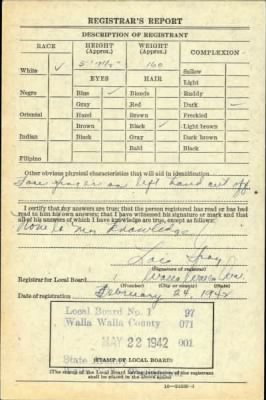 REGISTRAR'S REPORT
DESCRIPTION OF REGISTRANT
RACE HEIGHT (Approx.) WEIGHT (Approx.) COMPLEXION
White ✓ 160 Sallow
EYES HAIR Light
Negro Blue ✓ Blonde Ruddy
Gray Red Dark
Oriental Hazel Brown ✓ Freckled
Brown Black Light brown
Indian Black Gray Dark brown
Bald Black
Filipino
Other obvious physical characteristics that will aid in identification
on left hand cut off
I certify that my answers are true; that the person registered has read or has had
read to him his own answers; that I have witnessed his signature or mark and that
all of his answers of which I have knowledge are true, except as follows:
None to my knowledge
(Signature of registrar)
Registrar for Local Board 1 Walla Walla Wn.
(Number) (City or county) (State)
Date of registration February 24, 1942
Local Board No. 1 97
Walla Walla County 071
MAY 22 1942 001
State
(STAMP OF LOCAL BOARD)
(The stamp of the Local Board having jurisdiction of the registrant
shall be placed in the above space.)